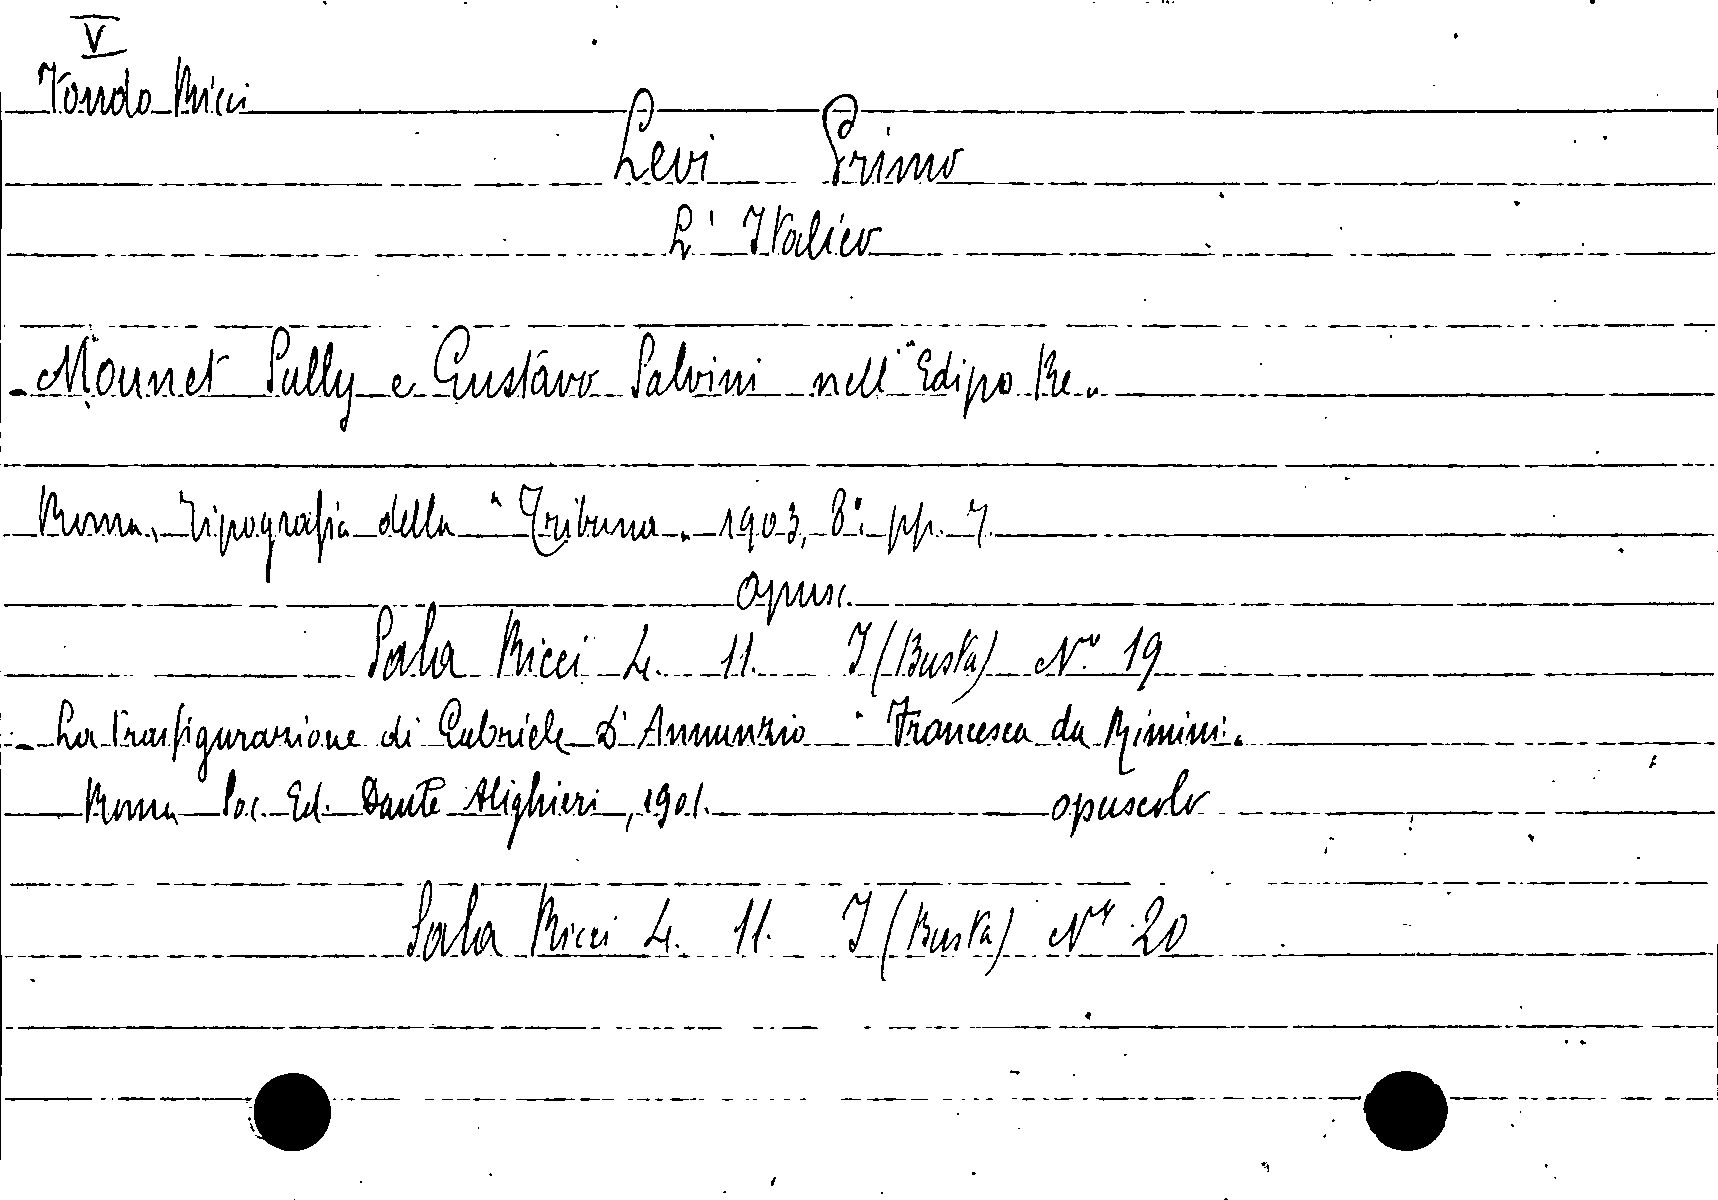 V
Fondo Ricci
Levi Primo
L'Italico
- Mounet Sully e Gustavo Salvini nell'"Edipo Re"
Roma, Tipografia della "Tribuna" 1903, 8° pp. 7.
opusc.
Sala Ricci L. 11. I (Busta) N.° 19
- La trasfigurazione di Gabriele D'Annunzio "Francesca da Rimini"
Roma Soc. Ed. Dante Alighieri, 1901. opuscolo
Sala Ricci L. 11. I (Busta) N° 20